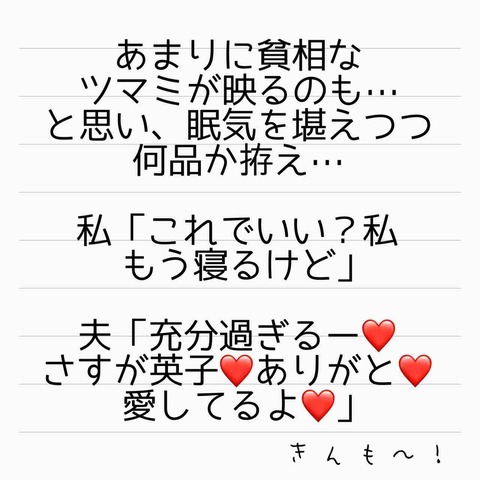 あまりに貧相な
ツマミが映るのも…
と思い、眠気を堪えつつ
何品か拵え…
私「これでいい？私
もう寝るけど」
夫「充分過ぎるー❤️
さすが英子❤️ありがと❤️
愛してるよ❤️」
きんも〜！